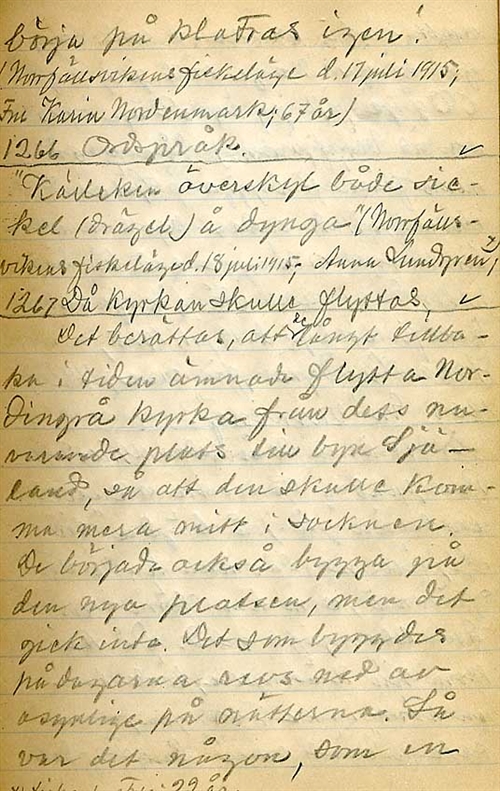 börja på klatras igen!
(Norrfällsvikens fiskeläge d. 17 juli 1915;
Fru Karin Nordenmark; 67 år)
1266 Ordspråk.
"Kärleken överskyl både sic-
kel (drägel) å dynga" (Norrfälls-
vikens fiskeläge d. 18 juli 1915; Anna Lundgren x);
1267 Då kyrkan skulle flyttas.
Det berättas, att långt tillba-
ka i tiden ämnade flytta Nor-
dingrå kyrka från dess nu-
varande plats till byn Själ-
land, så att den skulle kom-
ma mera mitt i socknen.
De började också bygga på
den nya platsen, men det
gick inte. Det som byggdes
på dagarna revs ned av
osynliga på nätterna. Så
var det någon, som en
22 år